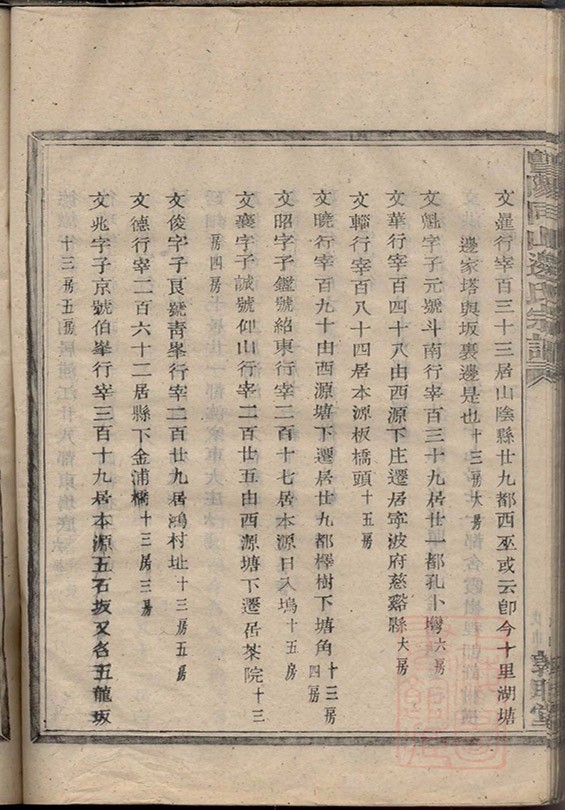 暨陽同山邊氏宗譜
敦睦堂
文暹行宰百三十三居山陰縣廿九都西巫或云卽今十里湖塘
邊家塔與坂裏邊是也十三房大房
文魁字子元號斗南行宰百三十九居廿一都孔小灣六房
文華行宰百四十八由西源下庄遷居寧波府慈谿縣大房
文輜行宰百八十四居本源板橋頭十五房
文曉行宰百九十由西源塘下遷居廿九都檡樹下塘角十三房四房
文昭字子鑑號紹東行宰二百十七居本源日入塢十五房
文襄字子誠號仰山行宰二百廿五由西源塘下遷居茶院十三
房四房
文俊字子良號靑峯行宰二百廿九居鴻村址十三房五房
文德行宰二百六十二居縣下金浦橋十三房三房
文兆字子京號伯峯行宰三百十九居本源五石坂又名五龍坂
十三房五房